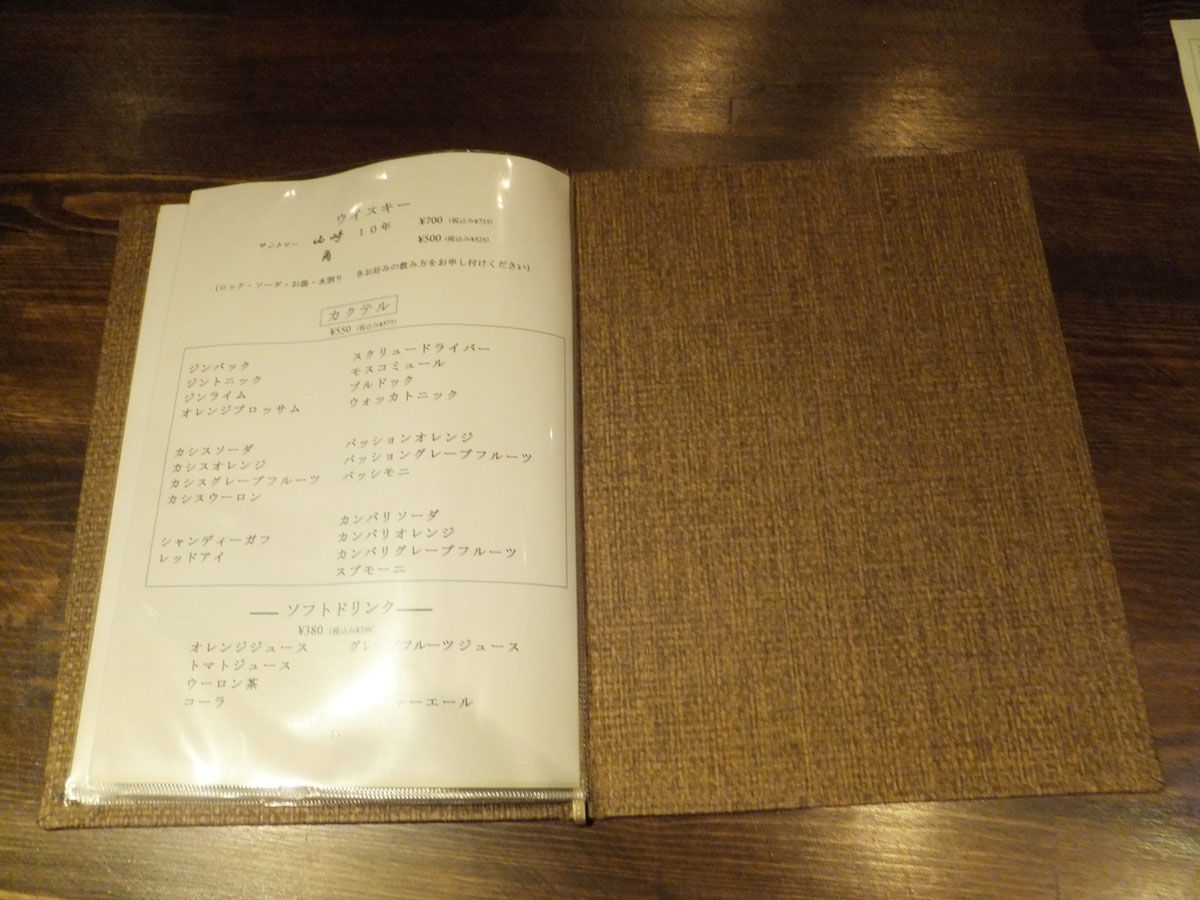 ウイスキー
サントリー 山崎 10年 ¥700 (税込み¥735)
角 ¥500 (税込み¥525)
(ロック・ソーダ・お湯・水割り 各お好みの飲み方をお申し付けください)
カクテル
¥550 (税込み¥577)
ジンバック スクリュードライバー
ジントニック モスコミュール
ジンライム ブルドック
オレンジブロッサム ウォッカトニック
カシスソーダ パッションオレンジ
カシスオレンジ パッショングレープフルーツ
カシスグレープフルーツ パッシモーニ
カシスウーロン
カンパリソーダ
シャンディーガフ カンパリオレンジ
レッドアイ カンパリグレープフルーツ
スプモーニ
ソフトドリンク
¥380 (税込み¥399)
オレンジジュース グレープフルーツジュース
トマトジュース
ウーロン茶
コーラ ャーエール
- 7 -